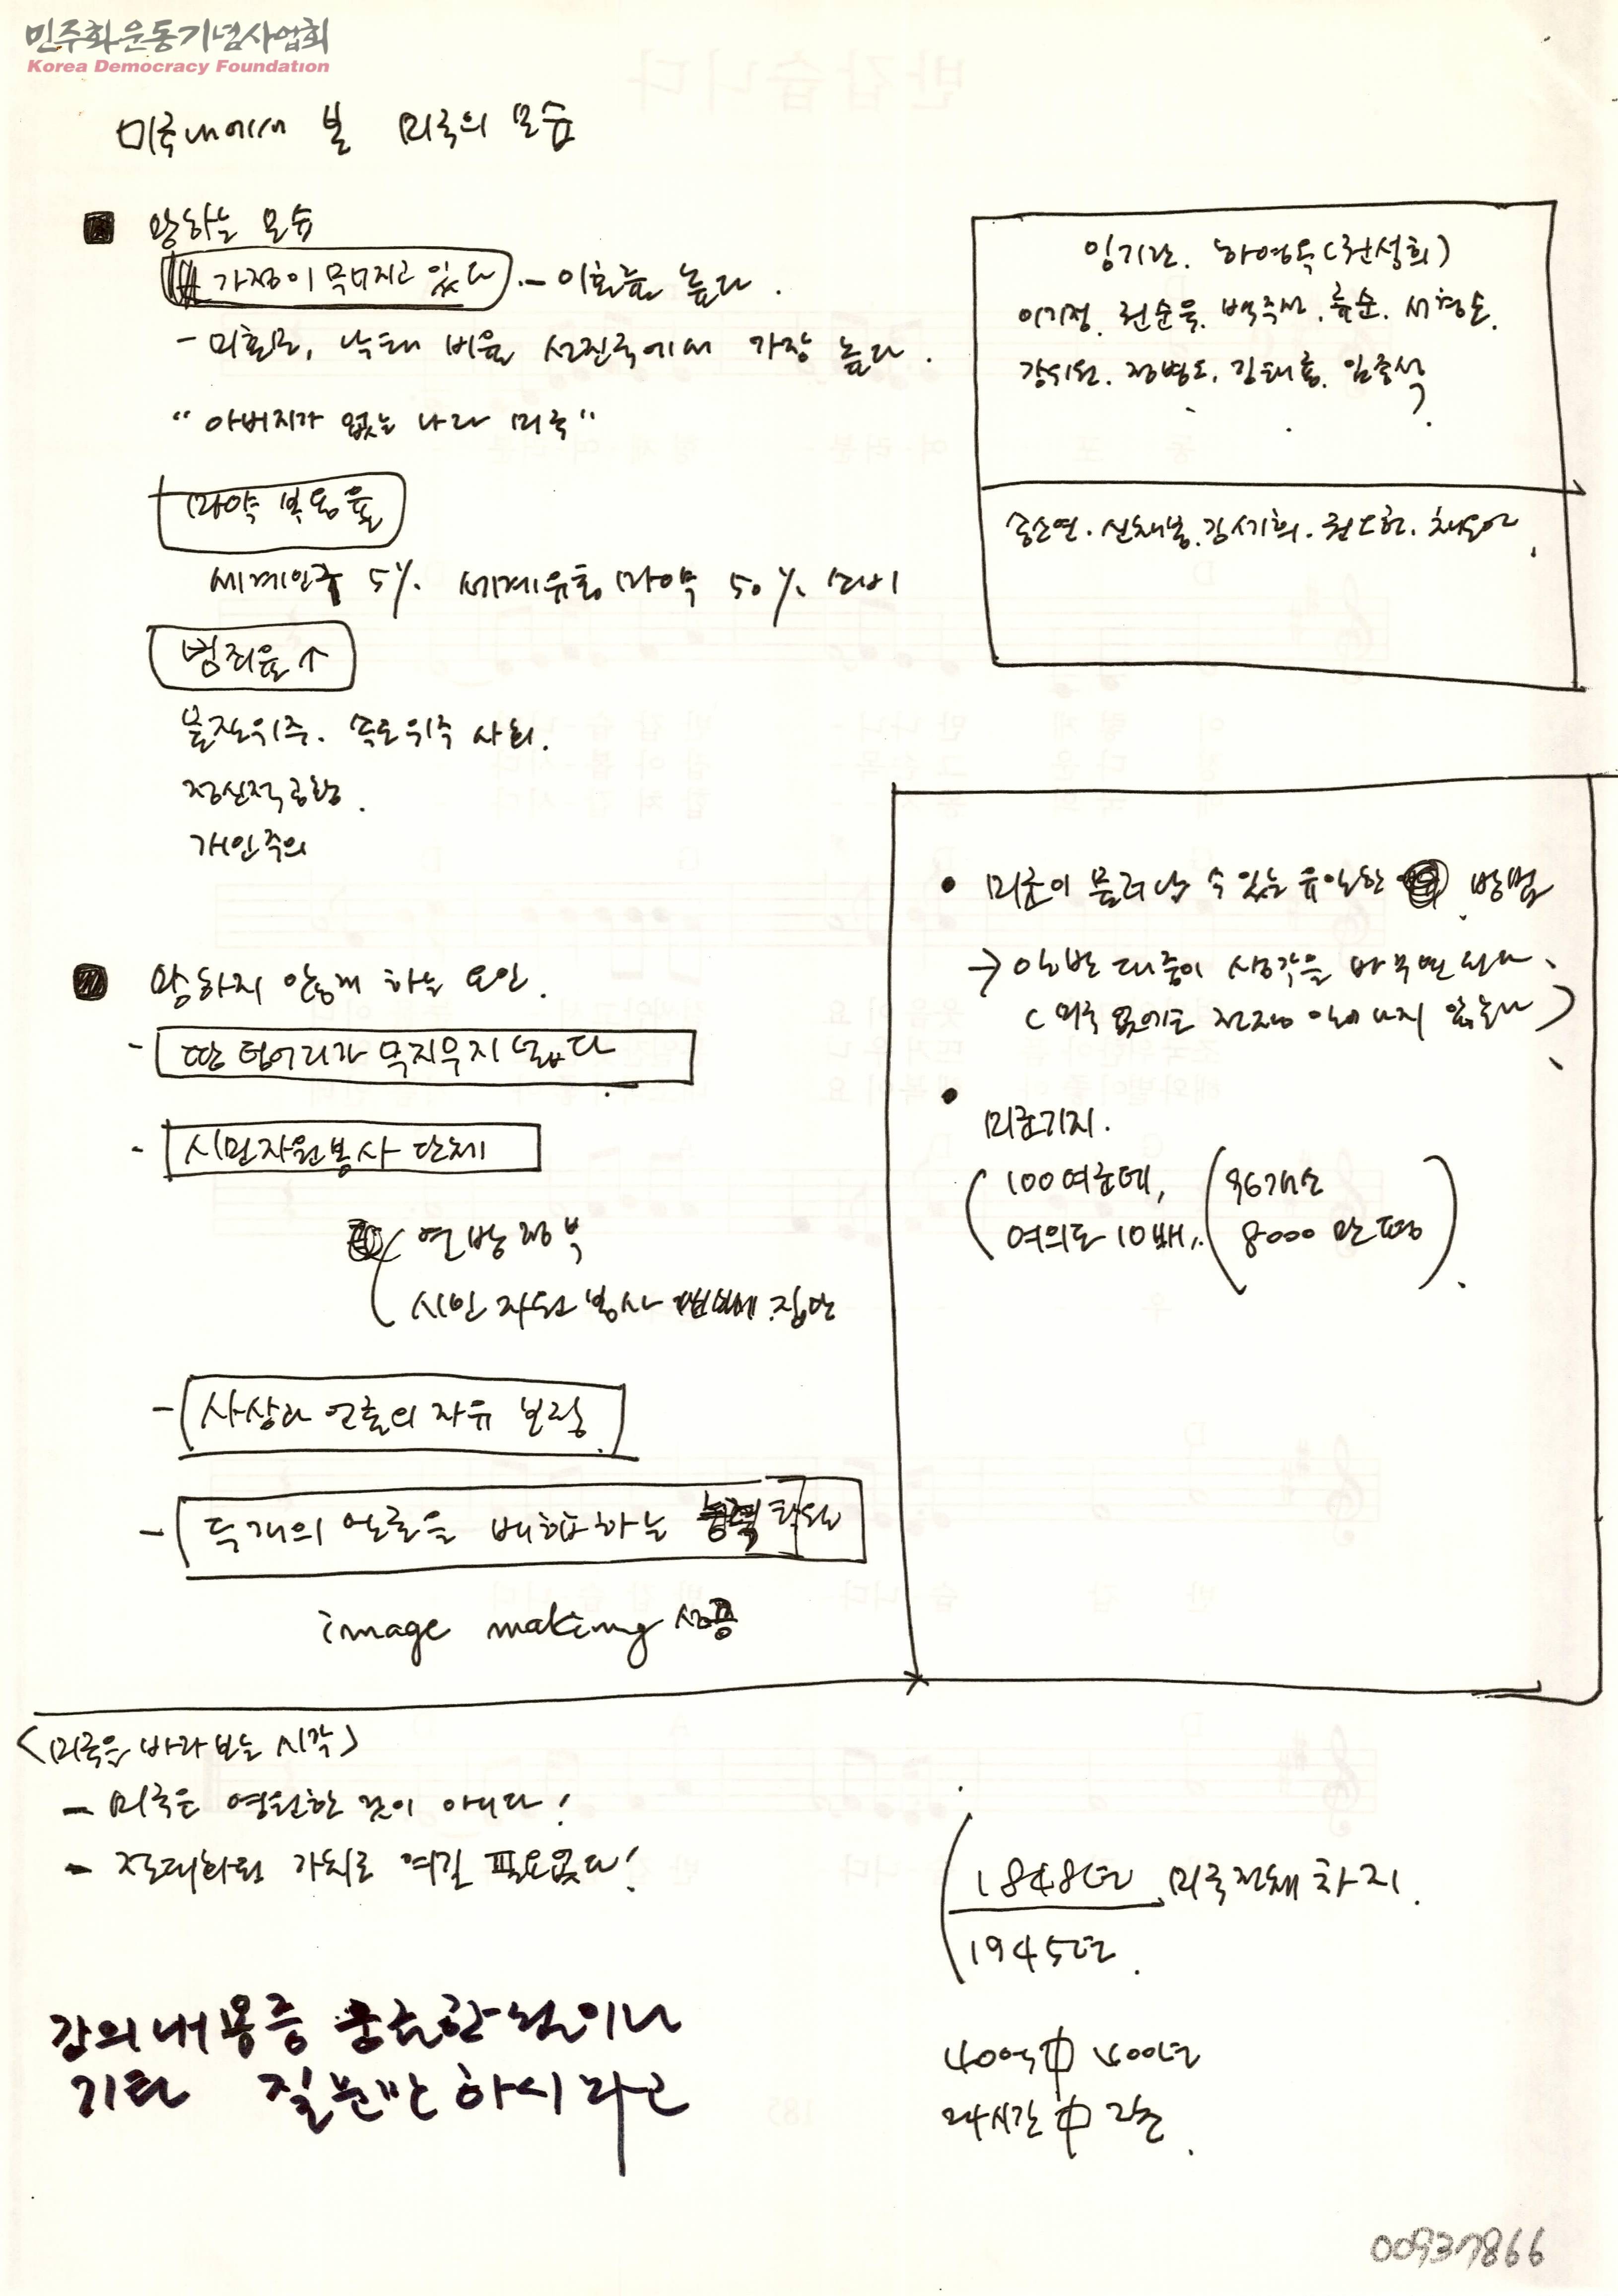 민주화운동기념사업회
Korea Democracy Foundation
미국내에서 본 미국의 모습
망하는 모습
가정이 무너지고 있다 - 이혼률 높다.
- 미혼모, 낙태 비율 선진국에서 가장 높다.
"아버지가 없는 나라 미국"
마약 복용율
세계인구 5%. 세계유통 마약 50% 소비
범죄율↑
물질위주. 속도위주 사회.
정신적공황.
개인주의
임기란. 하영옥(권성희)
이기정. 권순욱. 류순.
강위원. 정병도. 김태룡. 임종석
송소연.
망하지 않게 하는 요인.
- 땅 덩어리가 무지무지 넓다
- 시민자원봉사 단체
연방정부
시민 자원 봉사 집단
- 사상과 언론의 자유 보장
- 두개의 얼굴을 배합하는 탁월
image making 성공
• 미군이 물러날 수 있는 유일한 방법
→ 일반 대중이 생각을 바꾸면 된다.
(미국 없어도 전쟁 일어나지 않는다)
• 미군기지.
100여군데, (96개소
여의도 10배, 8000만평)
<미국을 바라보는 시각>
- 미국은 영원한 것이 아니다!
- 절대화된 가치로 여길 필요없다!
1848년 미국전체 차지.
1945년.
강의내용중 궁금한점이나
기타 질문만하시라고
400년
24시간中 2분.
00937866